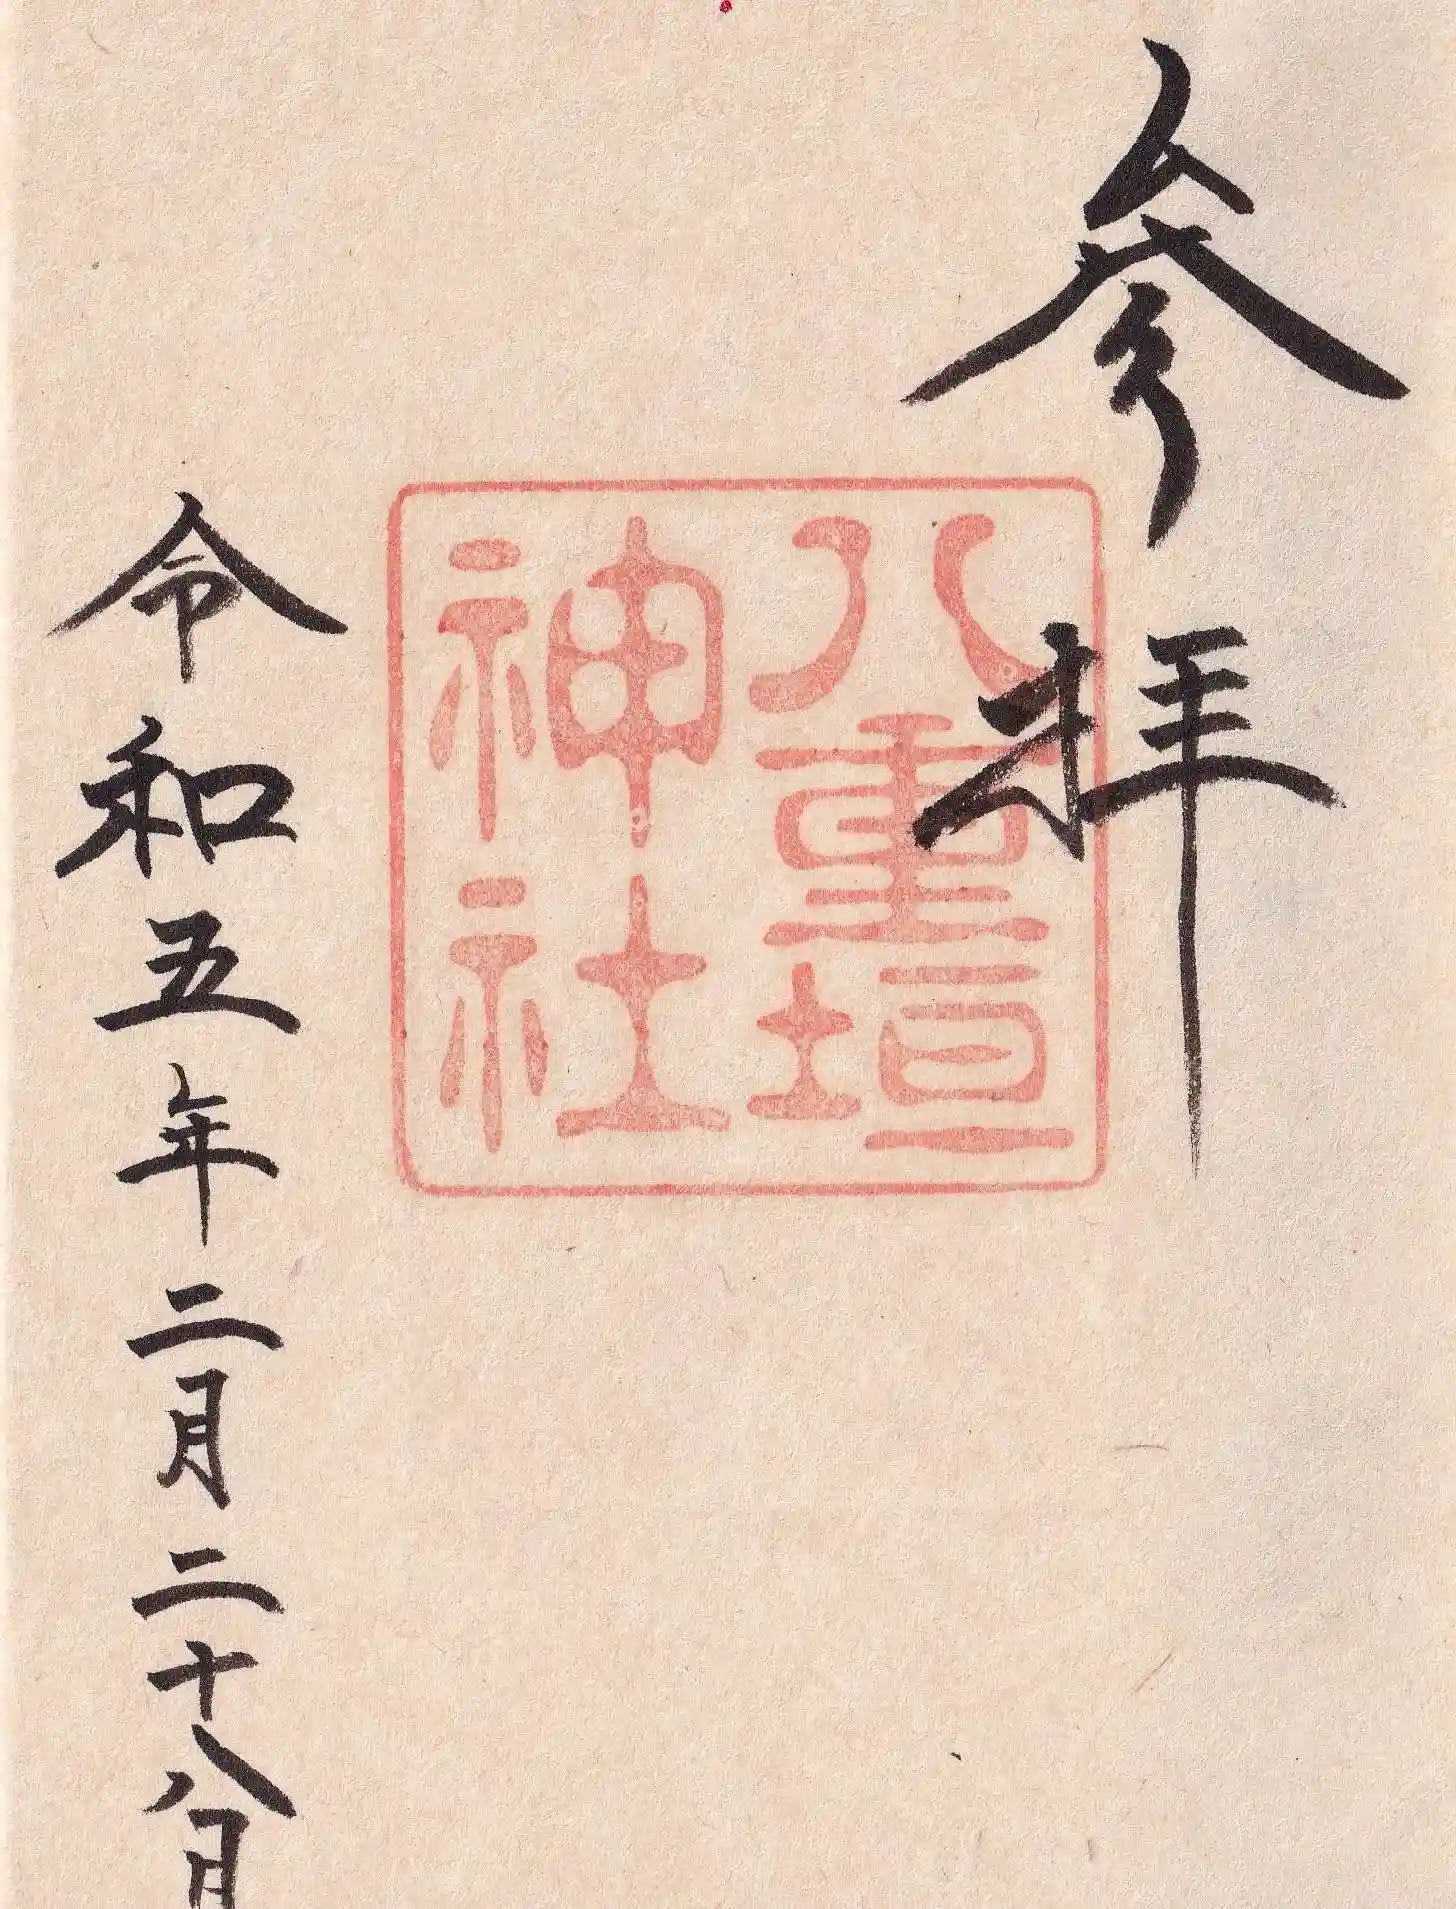 参拝
八重垣
神社
令和五年二月二十八日